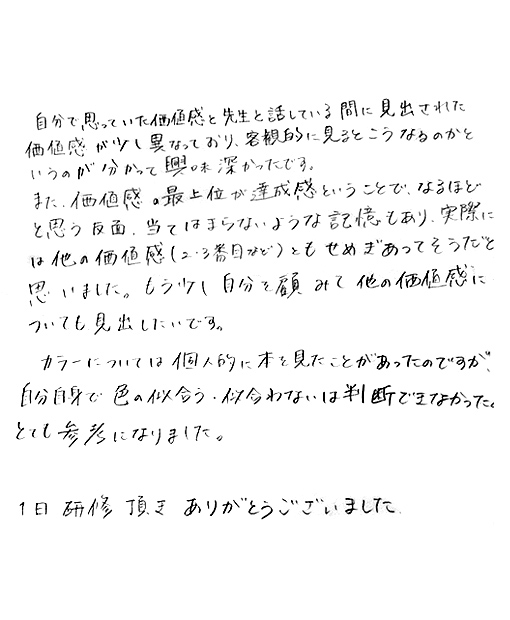 自分で思っていた価値感と先生と話している間に見出された
価値感が少し異なっており、客観的に見るとこうなるのかと
いうのが分かって興味深かったです。
また、価値感の最上位が達成感ということで、なるほど
と思う反面、当てはまらないような記憶もあり、実際に
は他の価値感(2・3番目など)ともせめぎあってそうだと
思いました。もう少し自分を顧みて他の価値感に
ついても見出したいです。
カラーについては個人的に本を見たことがあったのですが、
自分自身で色の似合う・似合わないは判断できなかった。
とても参考になりました。
1日研修頂きありがとうございました。